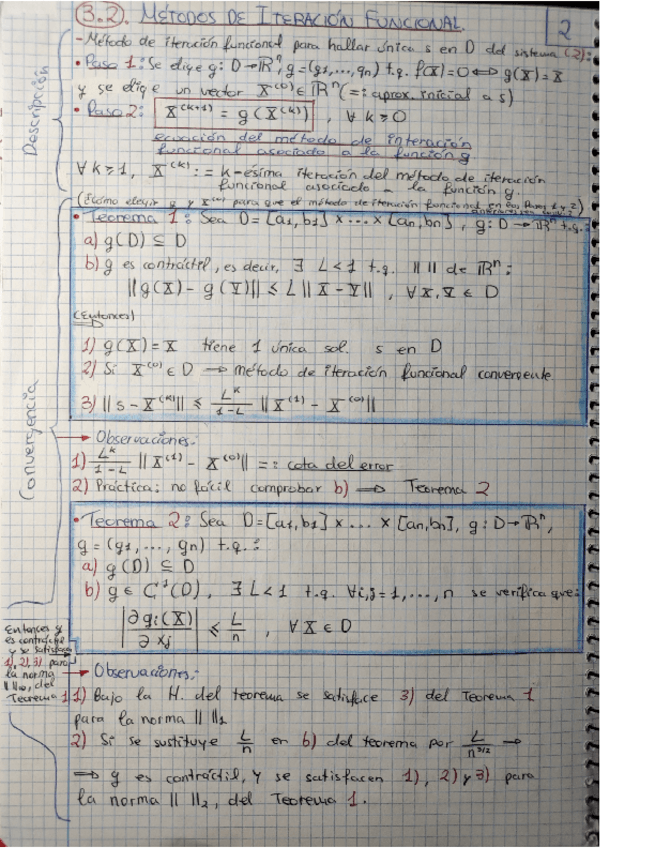 3.2). MÉTODOS DE ITERACIÓN FUNCIONAL. 2
- Método de iteración funcional para hallar única s en D del sistema (2):
• Paso 1: Se elige g: D→ℝⁿ, g=(g₁,...,gₙ) t.q. f(x)=0 ⟺ g(x)=x
y se elige un vector x⁽⁰⁾∈ℝⁿ (=: aprox. inicial a s)
• Paso 2: x⁽ᵏ⁺¹⁾ = g(x⁽ᵏ⁾), ∀ k≥0
ecuación del método de interación
funcional asociado a la función g
∀ k≥1, x⁽ᵏ⁾ := k-ésima iteración del método de iteración
funcional asociado a la función g.
Descripción
(¿Cómo elegir g y x⁽⁰⁾ para que el método de iteración funcional en los Pasos 1 y 2)
• Teorema 1: Sea D=[a₁,b₁] x...x [aₙ,bₙ], g: D→ℝⁿ t.q.:
a) g(D) ⊆ D
b) g es contráctil, es decir, ∃ L<1 t.q. || || de ℝⁿ:
||g(x) - g(y)|| ≤ L ||x - y||, ∀x,y ∈ D
(Entonces)
1) g(x) = x tiene 1 única sol. s en D
2) Si x⁽⁰⁾ ∈ D → método de iteración funcional convergente
3) ||s - x⁽ᵏ⁾|| ≤ Lᵏ/(1-L) ||x⁽¹⁾ - x⁽⁰⁾||
Convergencia
→ Observaciones.-
1) Lᵏ/(1-L) ||x⁽¹⁾ - x⁽⁰⁾|| =: cota del error
2) Práctica: no fácil comprobar b) ⟹ Teorema 2
• Teorema 2: Sea D=[a₁,b₁] x ... x [aₙ,bₙ], g: D→ℝⁿ,
g = (g₁, ..., gₙ) t.q.:
a) g(D) ⊆ D
b) g ∈ C¹(D), ∃ L<1 t.q. ∀i,j=1,...,n se verifica que:
|∂gᵢ(x)/∂xⱼ| ≤ L/n, ∀x∈D
Entonces g
es contráctil
y se satisfacen
1), 2), 3) para
la norma
|| ||∞, del
Teorema 1
→ Observaciones.-
1) Bajo la H. del teorema se satisface 3) del Teorema 1
para la norma || ||₁
2) Si se sustituye L/n en b) del teorema por L/n^(3/2) →
⟹ g es contráctil, y se satisfacen 1), 2) y 3) para
la norma || ||₂, del Teorema 1.